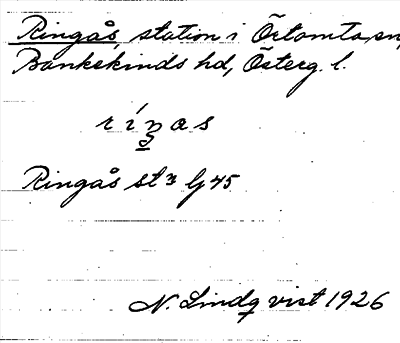 Ringås, station i Örtomta sn,
Bankekinds hd, Österg. l.
r í ŋ a s
Ringås st
N. Lindqvist 1926